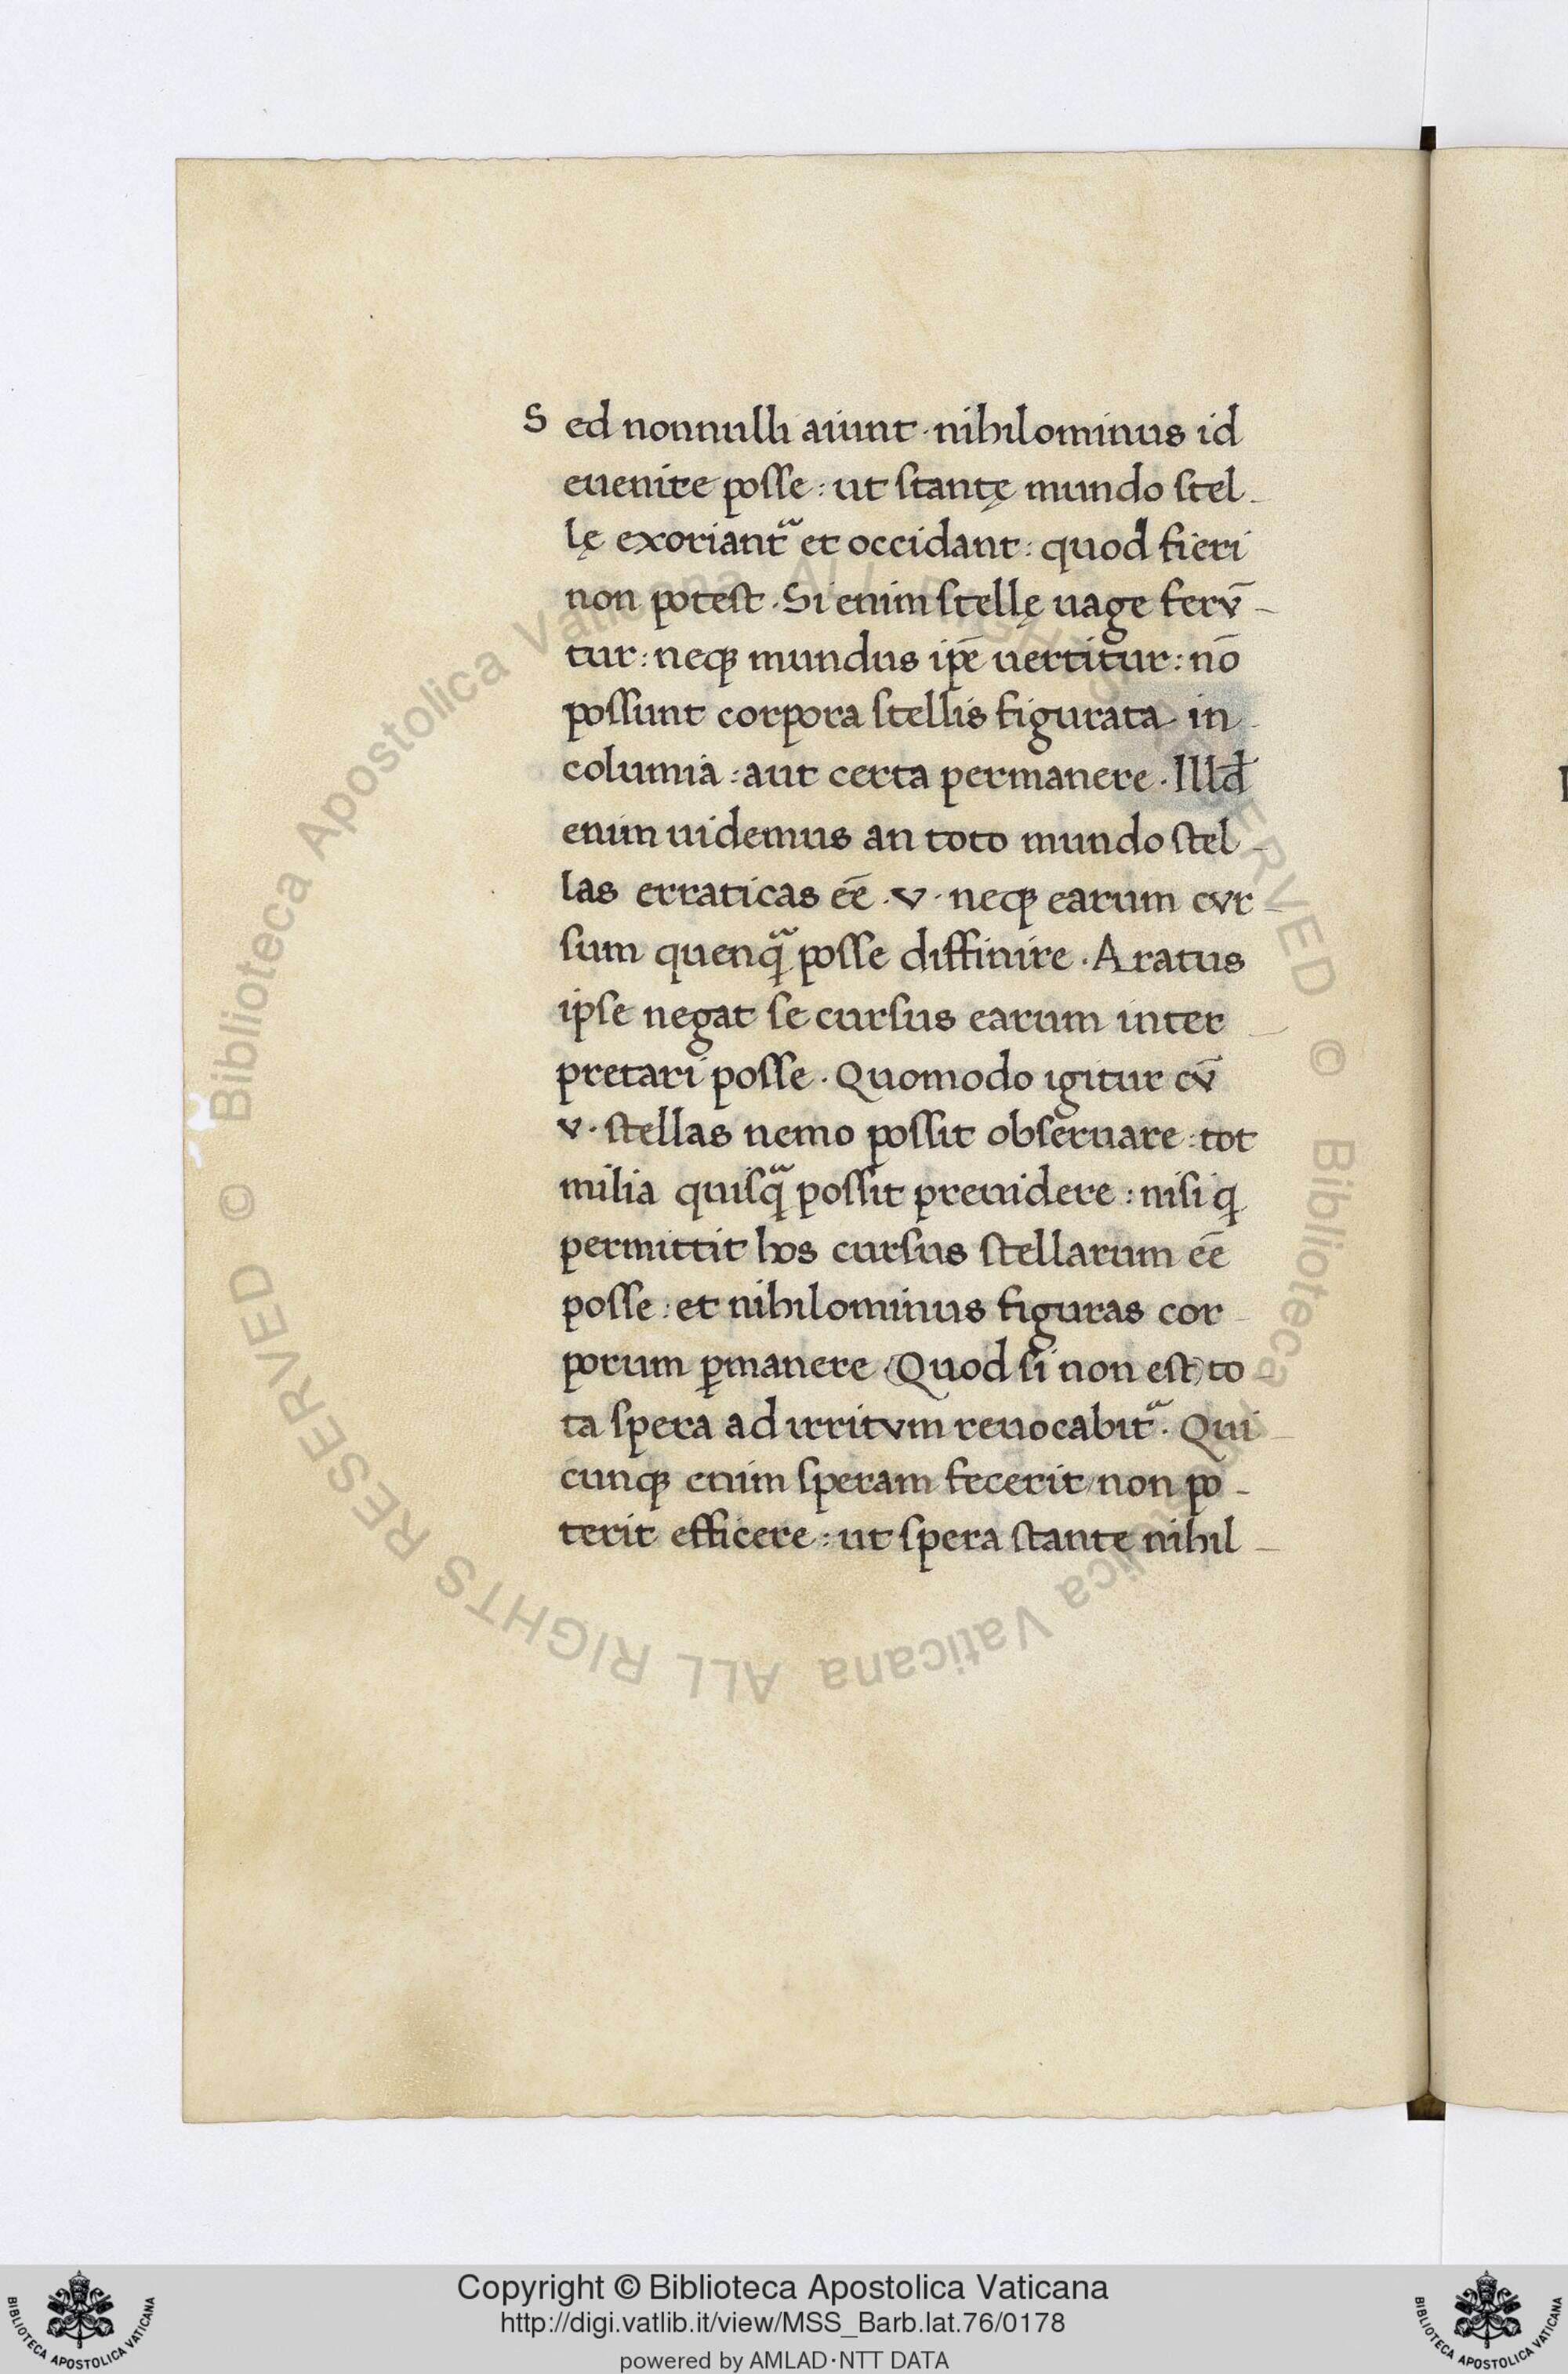 Sed nonnulli aiunt · nihilominus id
euenire posse : ut stantę mundo stel-
lę exoriantᷓ et occidant : quod fieri
non potest · Si enim stellę uage ferv̄-
tur : neqꝫ mundus ip̄e uertitur : nō
possunt corpora stellis figurata in-
columia : aut certa permanere · Illđ
enim uidemus an toto mundo stel-
las erraticas eē · v · neqꝫ earum cvr-
sum quenqᷓ posse diffinire · Aratus
ipse negat se cursus earum inter-
pretari posse · Quomodo igitur cv̄
v · stellas nemo possit obseruare : tot
milia quisqᷓ possit preuidere : nisi q
permittit hos cursus stellarum eē
posse : et nihilominus figuras cor-
porum ꝑmanere (Quod si non est) to-
ta spera ad irritvm reuocabitᷓ · Qui-
cunqꝫ enim speram fecerit / non po-
terit efficere : ut spera stante nihil-
© Biblioteca Apostolica Vaticana ALL RIGHTS RESERVED © Biblioteca Apostolica Vaticana ALL RIGHTS RESERVED
Copyright © Biblioteca Apostolica Vaticana
http://digi.vatlib.it/view/MSS_Barb.lat.76/0178
powered by AMLAD·NTT DATA
BIBLIOTECA APOSTOLICA VATICANA
BIBLIOTECA APOSTOLICA VATICANA